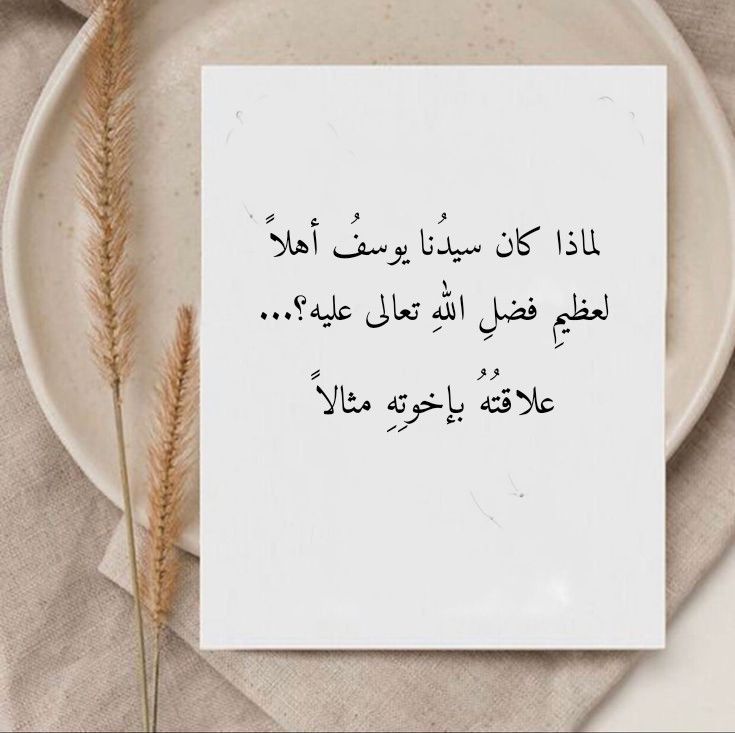 لماذا كان سيدُنا يوسفُ أهلاً
لعظيمِ فضلِ اللهِ تعالى عليه؟...
علاقتُهُ بإخوتِهِ مثالاً